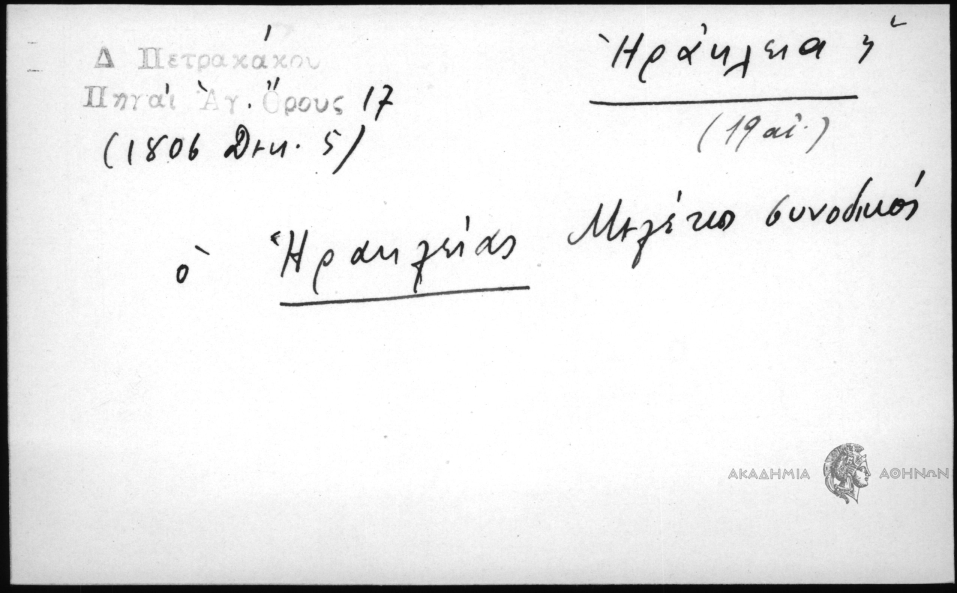 Δ Πετρακάκου
Πηγαὶ Ἁγ. Ὄρους 17
(1806 Δεκ. 5)
Ἡράκλεια ἡ
(19 αἰ.)
ὁ Ἡρακλείας Μελέτιος συνοδικός
ΑΚΑΔΗΜΙΑ ΑΘΗΝΩΝ